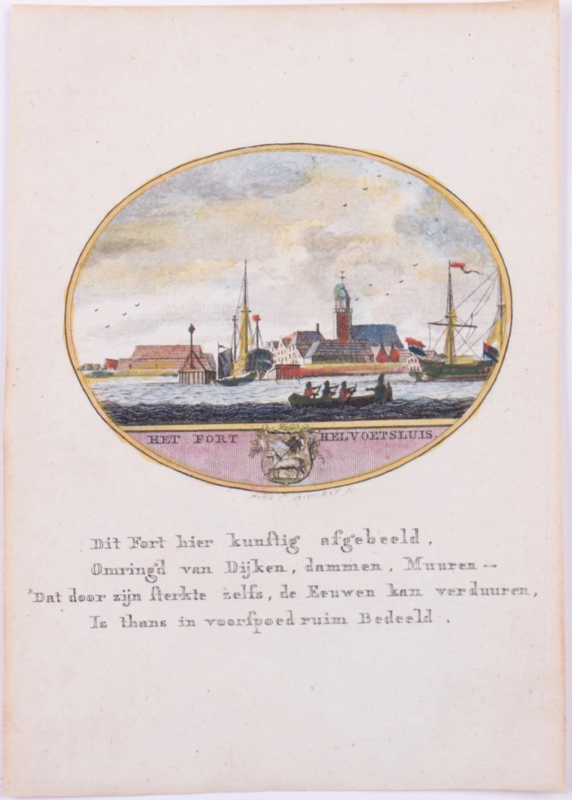 HET FORT HELVOETSLUIS.
Dit Fort hier kunſtig afgebeeld,
Omring'd van Dijken, dammen, Muuren —
Dat door zijn ſterkte zelfs, de Eeuwen kan verduuren,
Is thans in voorſpoed ruim Bedeeld.